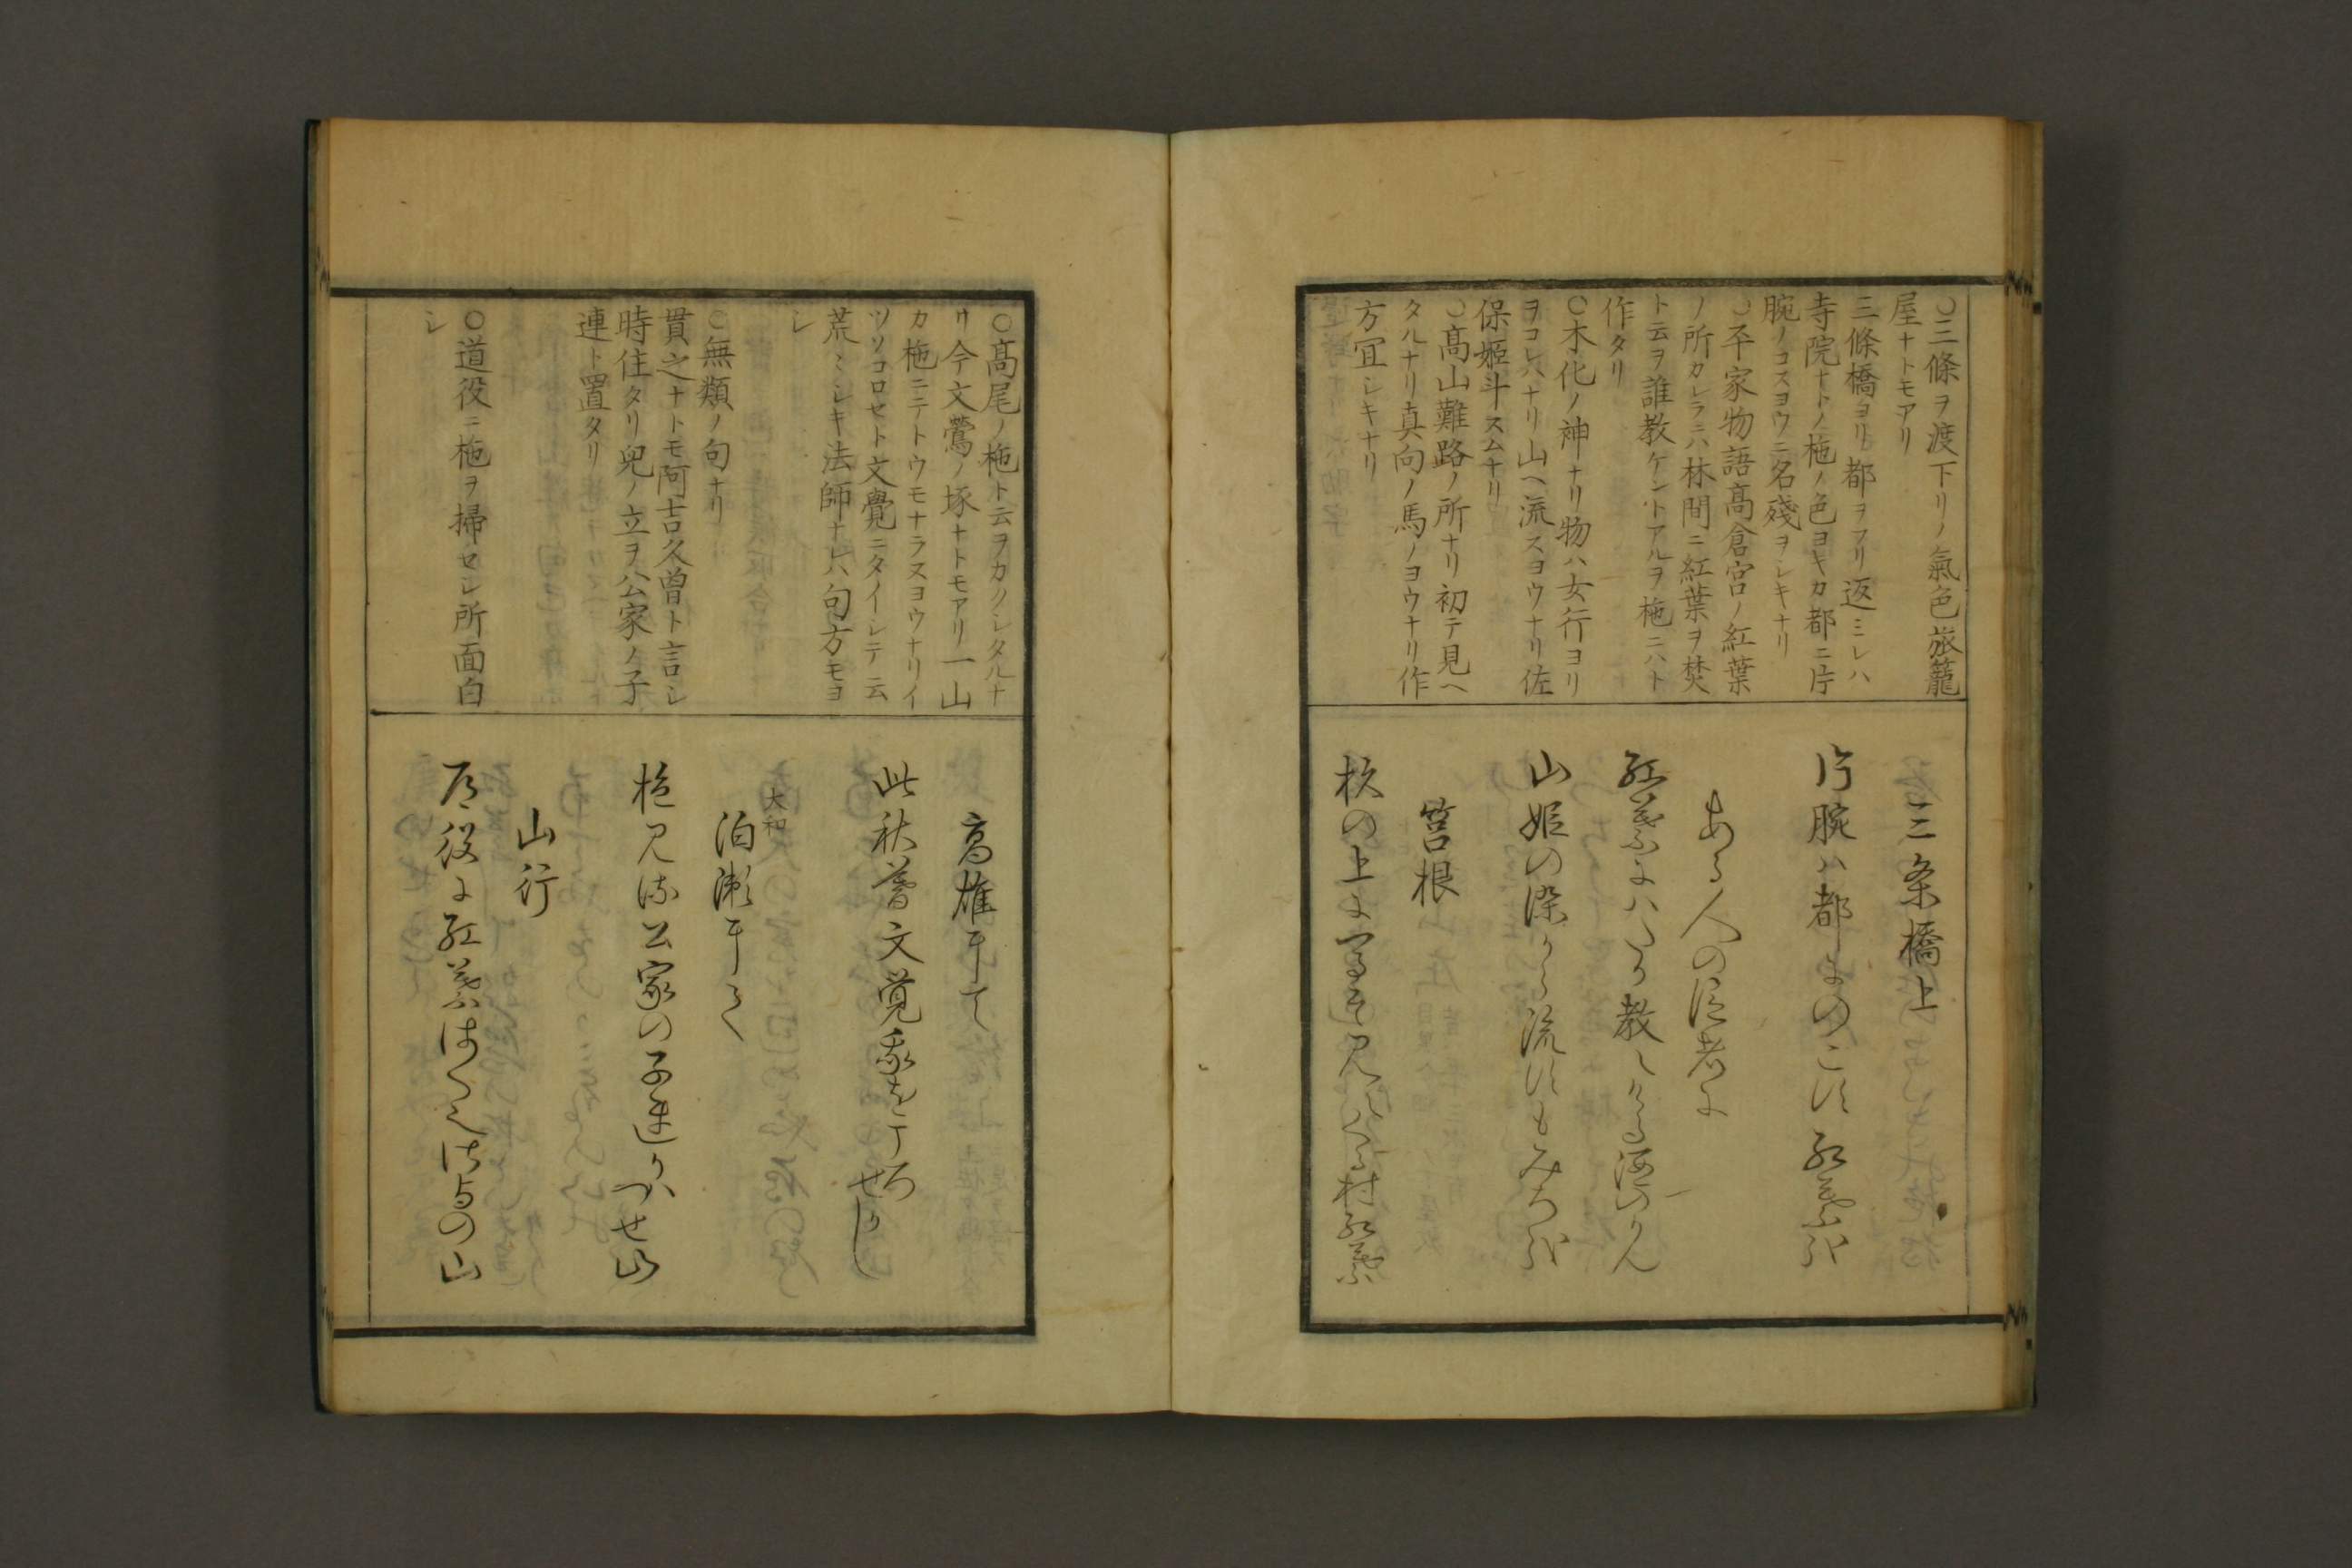 〇三條ヲ渡下リノ氣色旅籠
屋ナトモアリ
三條橋ヨリ都ヲフリ返ミレハ
寺院ナトノ栬ノ色ヨキカ都ニ片
腕ノコスヨウニ名殘ヲシキナリ
〇平家物語高倉宮ノ紅葉
ノ所カレラニハ林間ニ紅葉ヲ焚
ト云ヲ誰教ケントアルヲ栬ニハト
作タリ
〇木化ノ神ナリ物ハ女行ヨリ
ヲコレハナリ山ヘ流スヨウナリ佐
保姫斗スムナリ
〇髙山難路ノ所ナリ初テ見ヘ
タルナリ真向ノ馬ノヨウナリ作
方冝シキナリ
三条橋上
片腕ハ都にのこす紅葉哉
ある人の従者に
紅葉にハたか教へける酒のかん
山姫の染から流すもみち哉
筥根
杉の上に馬そ見へくる村紅葉
〇髙尾ノ栬ト云ヲカクシタルナ
リ今文鶯ノ琢ナトモアリ一山
カ栬ニテトウモナラヌヨウナリイ
ツソコロセト文覺ニタイシテ云
荒〻シキ法師ナレハ句方モヨ
シ
〇無類ノ句ナリ
貫之ナトモ阿古久曽ト言シ
時住タリ兒ノ立ヲ公家ノ子
連ト置タリ
〇道役ニ栬ヲ掃セシ所面白
シ
高雄にて
此秋暮文覚我をころせかし
大和
泊瀬にて
栬見や公家の子達かはつせ山
山行
道役に紅葉はく也さよの山